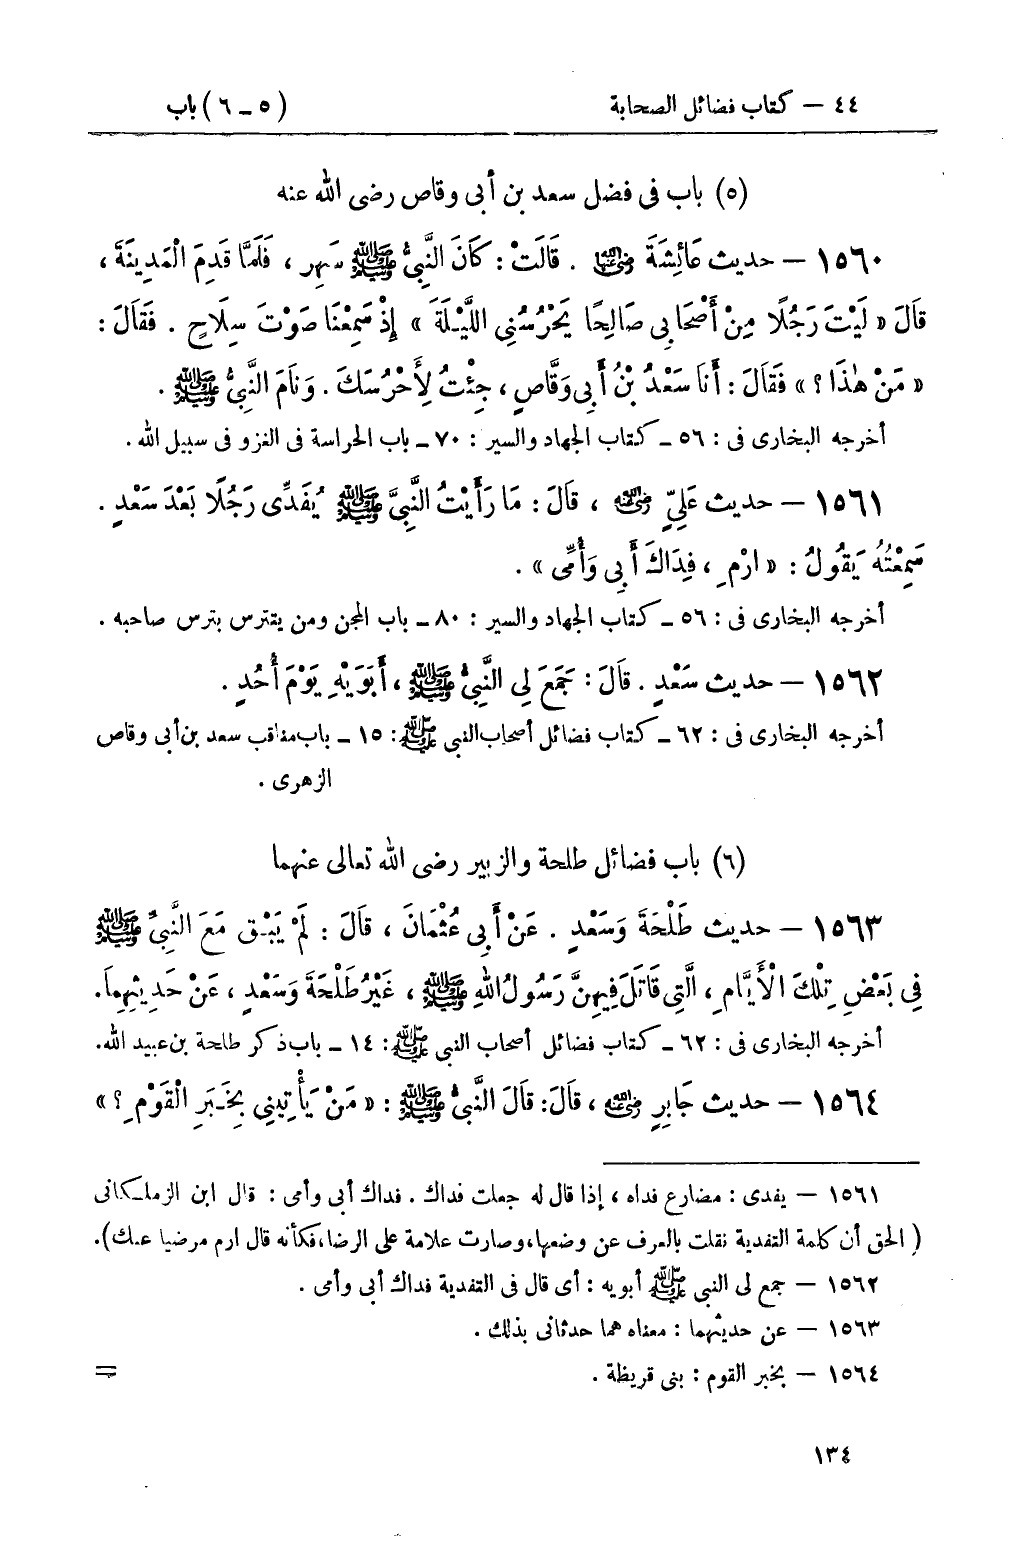 ٤٤ — كتاب فضائل الصحابة (٥ – ٦) باب
(٥) باب فى فضل سعد بن أبى وقاص رضى الله عنه
١٥٦٠ – حديث عَائِشَةَ رضي الله عنها . قَالَتْ : كَانَ النَّبِيُّ ﷺ سَهِرَ ، فَلَمَّا قَدِمَ الْمَدِينَةَ ،
قَالَ « لَيْتَ رَجُلًا مِنْ أَصْحَابِى صَالِحًا يَحْرُسُنِى اللَّيْلَةَ » إِذْ سَمِعْنَا صَوْتَ سِلَاحٍ . فَقَالَ :
« مَنْ هٰذَا ؟ » فَقَالَ : أَنَا سَعْدُ بْنُ أَبِى وَقَّاصٍ ، جِئْتُ لِأَحْرُسَكَ . وَنَامَ النَّبِيُّ ﷺ .
أخرجه البخارى فى : ٥٦ – كتاب الجهاد والسير : ٧٠ – باب الحراسة فى الغزو فى سبيل الله .
١٥٦١ – حديث عَلِيٍّ رضي الله عنه ، قَالَ : مَا رَأَيْتُ النَّبِيَّ ﷺ يُفَدِّى رَجُلًا بَعْدَ سَعْدٍ .
سَمِعْتُهُ يَقُولُ : « ارْمِ ، فِدَاكَ أَبِى وَأُمِّى » .
أخرجه البخارى فى : ٥٦ – كتاب الجهاد والسير : ٨٠ – باب المجن ومن يتترس بترس صاحبه .
١٥٦٢ – حديث سَعْدٍ . قَالَ : جَمَعَ لِى النَّبِيُّ ﷺ ، أَبَوَيْهِ يَوْمَ أُحُدٍ .
أخرجه البخارى فى : ٦٢ – كتاب فضائل أصحاب النبى ﷺ : ١٥ – باب مناقب سعد بن أبى وقاص
الزهرى .
(٦) باب فضائل طلحة والزبير رضى الله تعالى عنهما
١٥٦٣ – حديث طَلْحَةَ وَسَعْدٍ . عَنْ أَبِى عُثْمَانَ ، قَالَ : لَمْ يَبْقَ مَعَ النَّبِيِّ ﷺ
فِى بَعْضِ تِلْكَ الْأَيَّامِ ، الَّتِى قَاتَلَ فِيهِنَّ رَسُولُ اللهِ ﷺ ، غَيْرُ طَلْحَةَ وَسَعْدٍ ، عَنْ حَدِيثِهِمَا.
أخرجه البخارى فى : ٦٢ – كتاب فضائل أصحاب النبى ﷺ : ١٤ – باب ذكر طلحة بن عبيد الله.
١٥٦٤ – حديث جَابِرٍ رضي الله عنه ، قَالَ: قَالَ النَّبِيُّ ﷺ : « مَنْ يَأْتِينِى بِخَبَرِ الْقَوْمِ ؟ »
١٥٦١ – يفدى : مضارع فداه ، إذا قال له جعلت فداك . فداك أبى وأمى : قال ابن الزملكانى
( الحق أن كلمة التفدية نقلت بالعرف عن وضعها،وصارت علامة على الرضا،فكأنه قال ارم مرضيا عنك).
١٥٦٢ – جمع لى النبى ﷺ أبويه : أى قال فى التفدية فداك أبى وأمى .
١٥٦٣ – عن حديثهما : معناه هما حدثانى بذلك .
١٥٦٤ – بخبر القوم : بنى قريظة . =
١٣٤